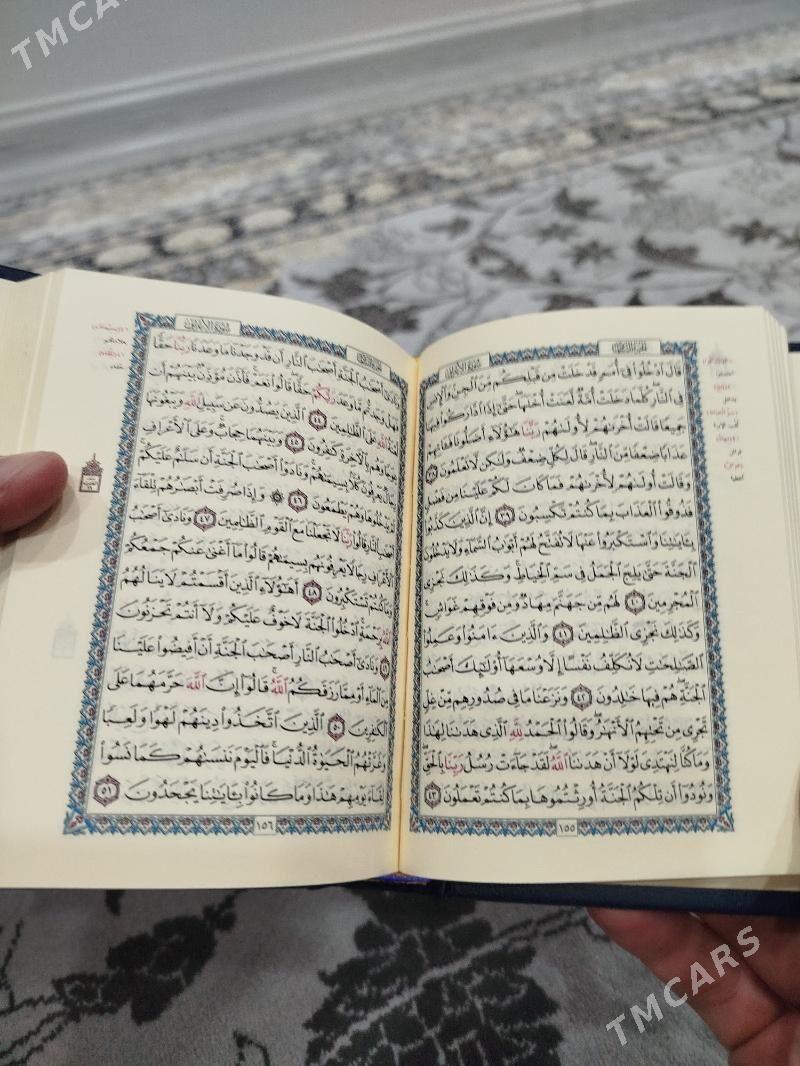 TMCARS
سورة الأعراف
الجزء الثامن
قَالَ ٱدْخُلُوا۟ فِىٓ أُمَمٍ قَدْ خَلَتْ مِن قَبْلِكُم مِّنَ ٱلْجِنِّ وَٱلْإِنسِ
فِى ٱلنَّارِ كُلَّمَا دَخَلَتْ أُمَّةٌ لَّعَنَتْ أُخْتَهَا حَتَّىٰٓ إِذَا ٱدَّارَكُوا۟ فِيهَا
جَمِيعًا قَالَتْ أُخْرَىٰهُمْ لِأُولَىٰهُمْ رَبَّنَا هَٰٓؤُلَآءِ أَضَلُّونَا فَـَٔاتِهِمْ
عَذَابًا ضِعْفًا مِّنَ ٱلنَّارِ قَالَ لِكُلٍّ ضِعْفٌ وَلَٰكِن لَّا تَعْلَمُونَ ٣٨
وَقَالَتْ أُولَىٰهُمْ لِأُخْرَىٰهُمْ فَمَا كَانَ لَكُمْ عَلَيْنَا مِن فَضْلٍ
فَذُوقُوا۟ ٱلْعَذَابَ بِمَا كُنتُمْ تَكْسِبُونَ ٣٩ إِنَّ ٱلَّذِينَ كَذَّبُوا۟
بِـَٔايَٰتِنَا وَٱسْتَكْبَرُوا۟ عَنْهَا لَا تُفَتَّحُ لَهُمْ أَبْوَٰبُ ٱلسَّمَآءِ وَلَا يَدْخُلُونَ
ٱلْجَنَّةَ حَتَّىٰ يَلِجَ ٱلْجَمَلُ فِى سَمِّ ٱلْخِيَاطِ وَكَذَٰلِكَ نَجْزِى
ٱلْمُجْرِمِينَ ٤٠ لَهُم مِّن جَهَنَّمَ مِهَادٌ وَمِن فَوْقِهِمْ غَوَاشٍ
وَكَذَٰلِكَ نَجْزِى ٱلظَّٰلِمِينَ ٤١ وَٱلَّذِينَ ءَامَنُوا۟ وَعَمِلُوا۟
ٱلصَّٰلِحَٰتِ لَا نُكَلِّفُ نَفْسًا إِلَّا وُسْعَهَآ أُو۟لَٰٓئِكَ أَصْحَٰبُ
ٱلْجَنَّةِ هُمْ فِيهَا خَٰلِدُونَ ٤٢ وَنَزَعْنَا مَا فِى صُدُورِهِم مِّنْ غِلٍّ
تَجْرِى مِن تَحْتِهِمُ ٱلْأَنْهَٰرُ وَقَالُوا۟ ٱلْحَمْدُ لِلَّهِ ٱلَّذِى هَدَىٰنَا لِهَٰذَا
وَمَا كُنَّا لِنَهْتَدِىَ لَوْلَآ أَنْ هَدَىٰنَا ٱللَّهُ لَقَدْ جَآءَتْ رُسُلُ رَبِّنَا بِٱلْحَقِّ
وَنُودُوٓا۟ أَن تِلْكُمُ ٱلْجَنَّةُ أُورِثْتُمُوهَا بِمَا كُنتُمْ تَعْمَلُونَ ٤٣
١٥٥
سورة الأعراف
الجزء الثامن
وَنَادَىٰٓ أَصْحَٰبُ ٱلْجَنَّةِ أَصْحَٰبَ ٱلنَّارِ أَن قَدْ وَجَدْنَا مَا وَعَدَنَا رَبُّنَا حَقًّا
فَهَلْ وَجَدتُّم مَّا وَعَدَ رَبُّكُمْ حَقًّا قَالُوا۟ نَعَمْ فَأَذَّنَ مُؤَذِّنٌۢ بَيْنَهُمْ أَن
لَّعْنَةُ ٱللَّهِ عَلَى ٱلظَّٰلِمِينَ ٤٤ ٱلَّذِينَ يَصُدُّونَ عَن سَبِيلِ ٱللَّهِ وَيَبْغُونَهَا
عِوَجًا وَهُم بِٱلْـَٔاخِرَةِ كَٰفِرُونَ ٤٥ وَبَيْنَهُمَا حِجَابٌ وَعَلَى ٱلْأَعْرَافِ
رِجَالٌ يَعْرِفُونَ كُلًّۢا بِسِيمَىٰهُمْ وَنَادَوْا۟ أَصْحَٰبَ ٱلْجَنَّةِ أَن سَلَٰمٌ عَلَيْكُمْ
لَمْ يَدْخُلُوهَا وَهُمْ يَطْمَعُونَ ٤٦ ۞ وَإِذَا صُرِفَتْ أَبْصَٰرُهُمْ تِلْقَآءَ
أَصْحَٰبِ ٱلنَّارِ قَالُوا۟ رَبَّنَا لَا تَجْعَلْنَا مَعَ ٱلْقَوْمِ ٱلظَّٰلِمِينَ ٤٧ وَنَادَىٰٓ أَصْحَٰبُ
ٱلْأَعْرَافِ رِجَالًا يَعْرِفُونَهُم بِسِيمَىٰهُمْ قَالُوا۟ مَآ أَغْنَىٰ عَنكُمْ جَمْعُكُمْ
وَمَا كُنتُمْ تَسْتَكْبِرُونَ ٤٨ أَهَٰٓؤُلَآءِ ٱلَّذِينَ أَقْسَمْتُمْ لَا يَنَالُهُمُ
ٱللَّهُ بِرَحْمَةٍ ٱدْخُلُوا۟ ٱلْجَنَّةَ لَا خَوْفٌ عَلَيْكُمْ وَلَآ أَنتُمْ تَحْزَنُونَ
٤٩ وَنَادَىٰٓ أَصْحَٰبُ ٱلنَّارِ أَصْحَٰبَ ٱلْجَنَّةِ أَنْ أَفِيضُوا۟ عَلَيْنَا
مِنَ ٱلْمَآءِ أَوْ مِمَّا رَزَقَكُمُ ٱللَّهُ قَالُوٓا۟ إِنَّ ٱللَّهَ حَرَّمَهُمَا عَلَى
ٱلْكَٰفِرِينَ ٥٠ ٱلَّذِينَ ٱتَّخَذُوا۟ دِينَهُمْ لَهْوًا وَلَعِبًا
وَغَرَّتْهُمُ ٱلْحَيَوٰةُ ٱلدُّنْيَا فَٱلْيَوْمَ نَنسَىٰهُمْ كَمَا نَسُوا۟
لِقَآءَ يَوْمِهِمْ هَٰذَا وَمَا كَانُوا۟ بِـَٔايَٰتِنَا يَجْحَدُونَ ٥١
١٥٦
TMCARS